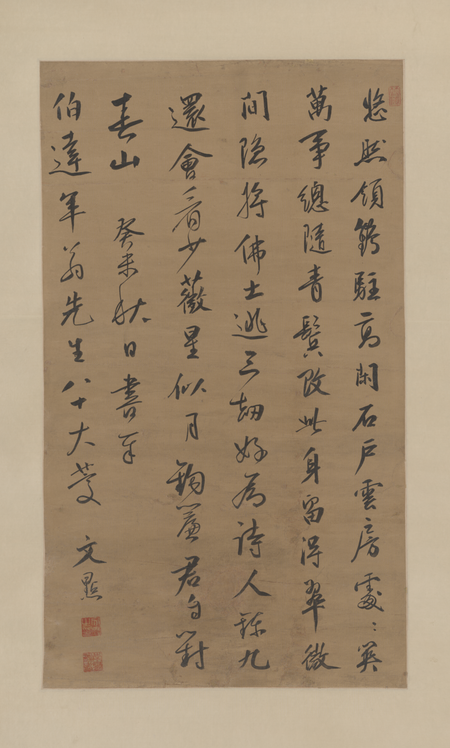 悠然領鶴駐高閑石戶雲房處〻關
萬事總隨青鬢改此身留得翠微
間隐將佛土逃三劫好為詩人鍊九
還會看少薇星似月鉤簾君自對
春山 癸未秋日書奉
伯達年翁先生八十大慶 文點